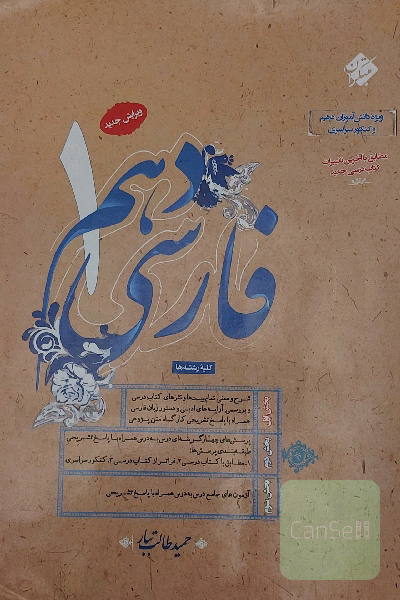 مبتکران
ویژه دانش‌آموزان دهم
و کنکور سراسری
مطابق با آخرین تغییرات
کتاب درسی جدید
ویرایش جدید
۱
فارسی دهم
کلیهٔ رشته‌ها
بخش اول
شرح و معنی تمام بیت‌ها و نثرهای کتاب درسی
و بررسی آرایه‌های ادبی و دستور زبان فارسی
همراه با پاسخ تشریحی کارگاه متن‌پژوهی
بخش دوم
پرسش‌های چهارگزینه‌ای درس به درس همراه با پاسخ تشریحی
طبقه‌بندی پرسش‌ها:
۱. مطابق با کتاب درسی ۲. فراتر از کتاب درسی ۳. کنکور سراسری
بخش سوم
آزمون‌های جامع درس به درس همراه با پاسخ تشریحی
حمید طالب تبار
CanSell